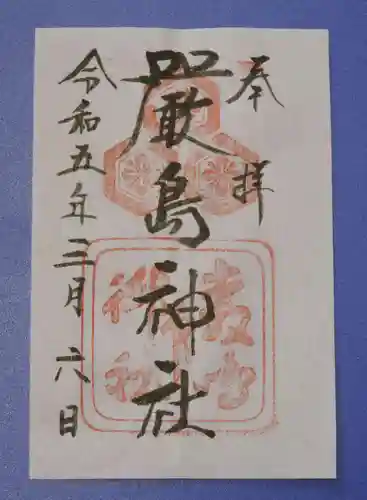 奉拝
厳島神社
令和五年三月六日